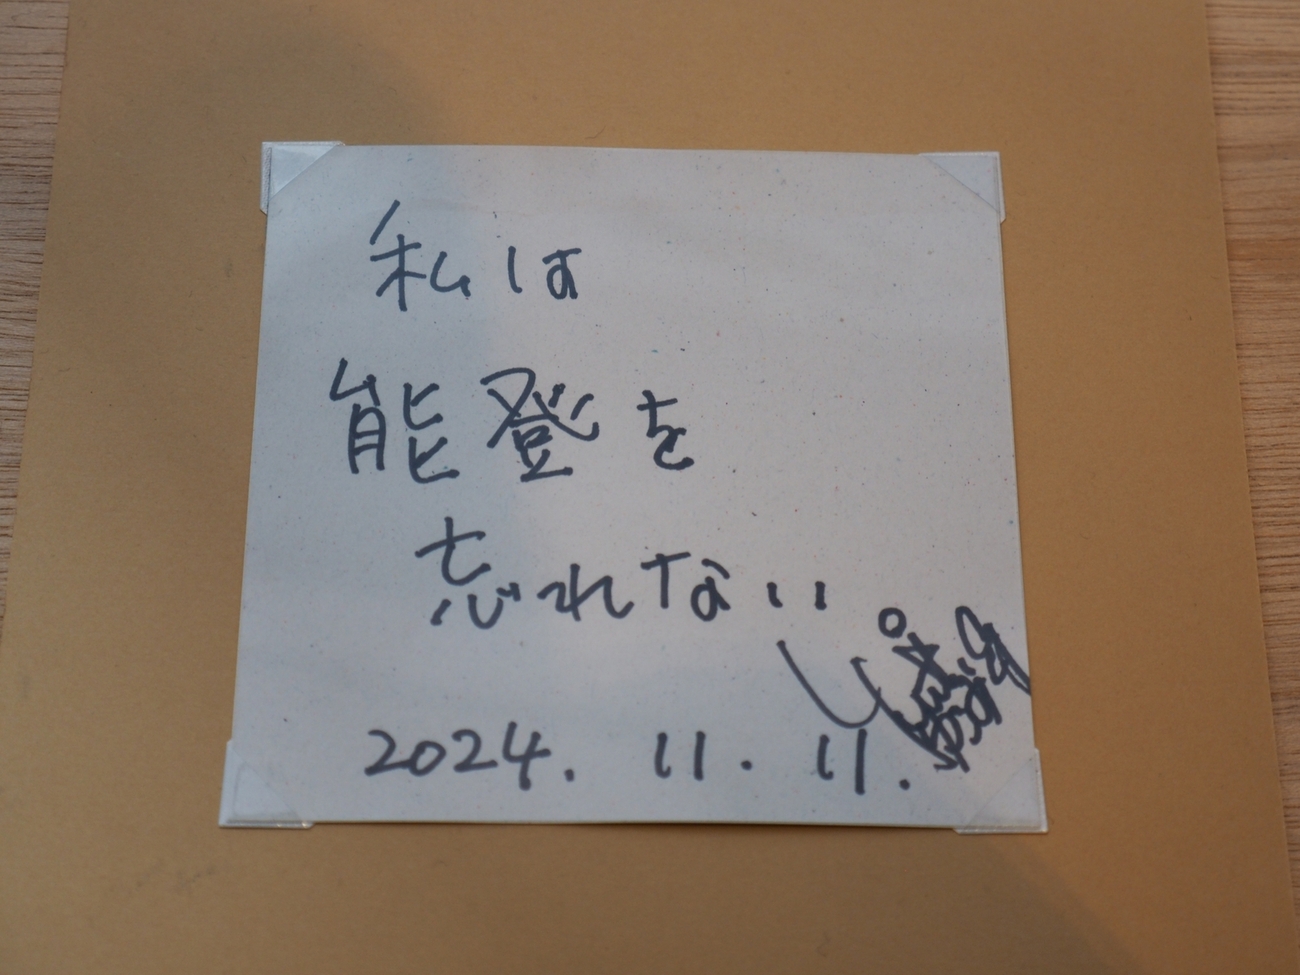 私は
能登を
忘れない
2024.11.11.